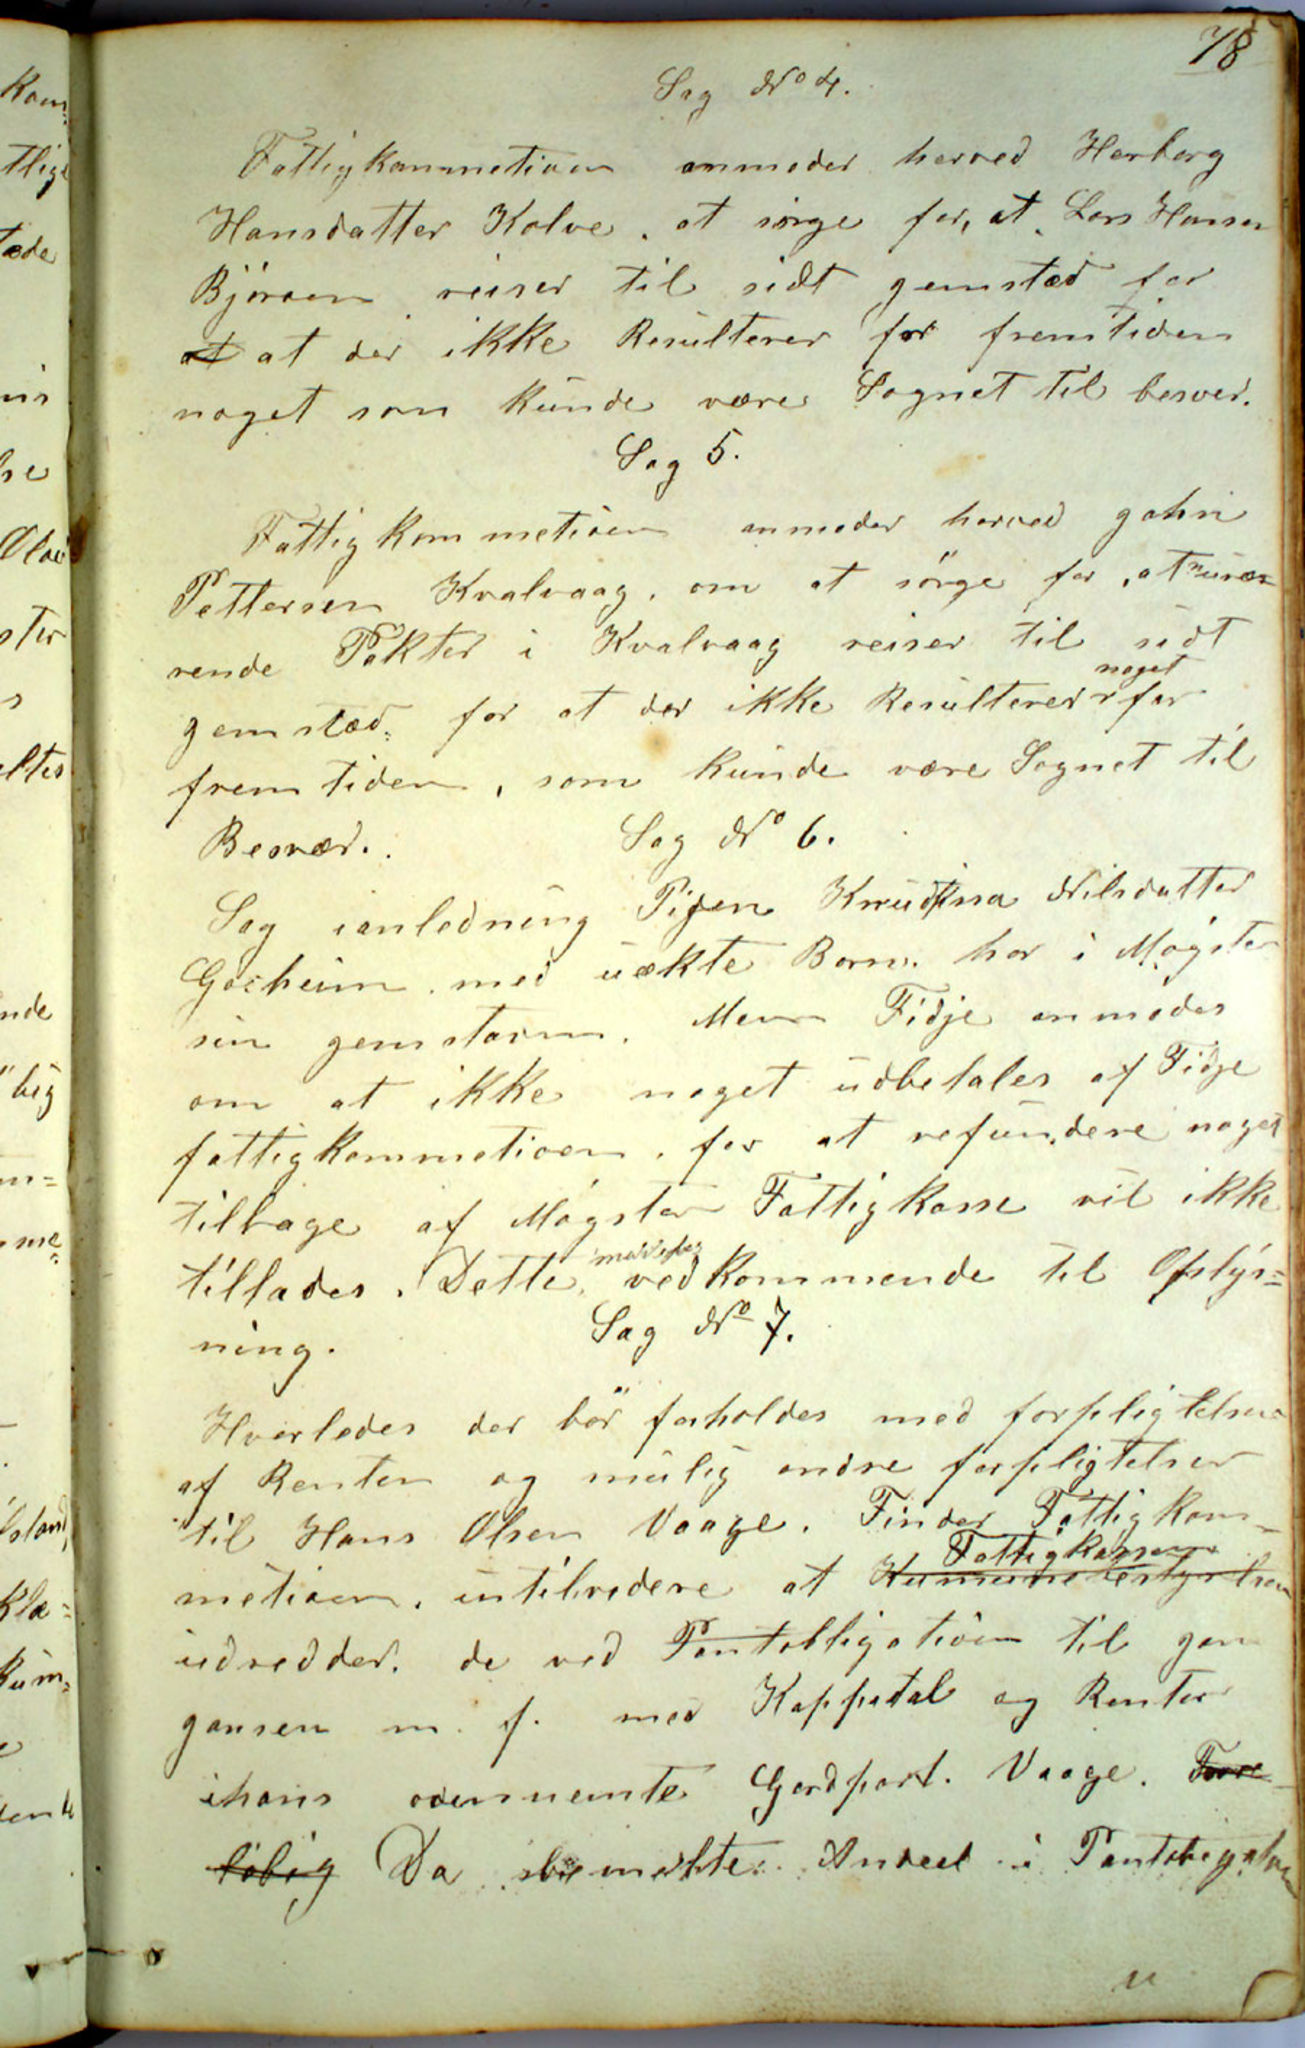 78
Sag No 4.
Fattigkommetioen anmoder herved Herborg
Hansdatter Kolve. at sørge for, at Lars Hansen
Björoen reiser til sidt gemstæd for
at at der ikke Resulterer for fremtiden
noget som kunde være Sognet til besver.
Sag 5.
Fattigkommetioen anmoder herved gohn
Pettersen Kvalvaag. om at sörge for, at nuvæ-
rende Pakter i Kvalvaag reiser til sidt
gemstæd. for at der ikke Resulterer noget for
fremtiden, som kunde være Sognet til
Besvær.
Sag No 6.
Sag ianledning Pigen Knudtina Nilsdatter
Goeheim. med uækte Born. har i Møgster
sin gemstavn. Men Fidje anmodes
om at ikke noget udbetales af Fidje
fattigkommetioen. for at refundere noget
tilbage af Møgster Fattigkasse vil ikke
tillades. Dette meddeles vedkommende til Oplys=
ning.
Sag No 7.
Hvorledes der bör forholdes med forpligtelsen
af Renter og mulig andre forpligtelser
til Hans Olsen Vaage. Finder Fattigkom-
metioen. intilvidere at Kumunebestyrelsen Fattigkassen
udredder. de ved Pantobligotioen til gon
gonsen m. f. med Kappital og Renter
ihans odennemte Gordpart. Vaage. Fore
löbig Da Andeel i